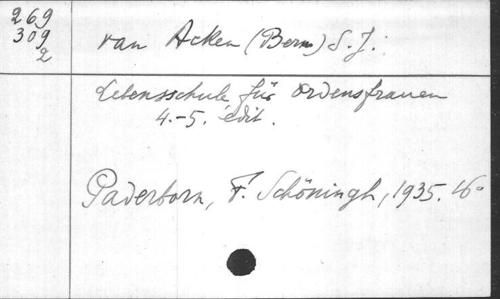 269
309
2
van Acken (Bern) S. J.
Lebensschule für Ordensfrauen
4.-5. édit.
Paderborn, F. Schöningh, 1935. 16°